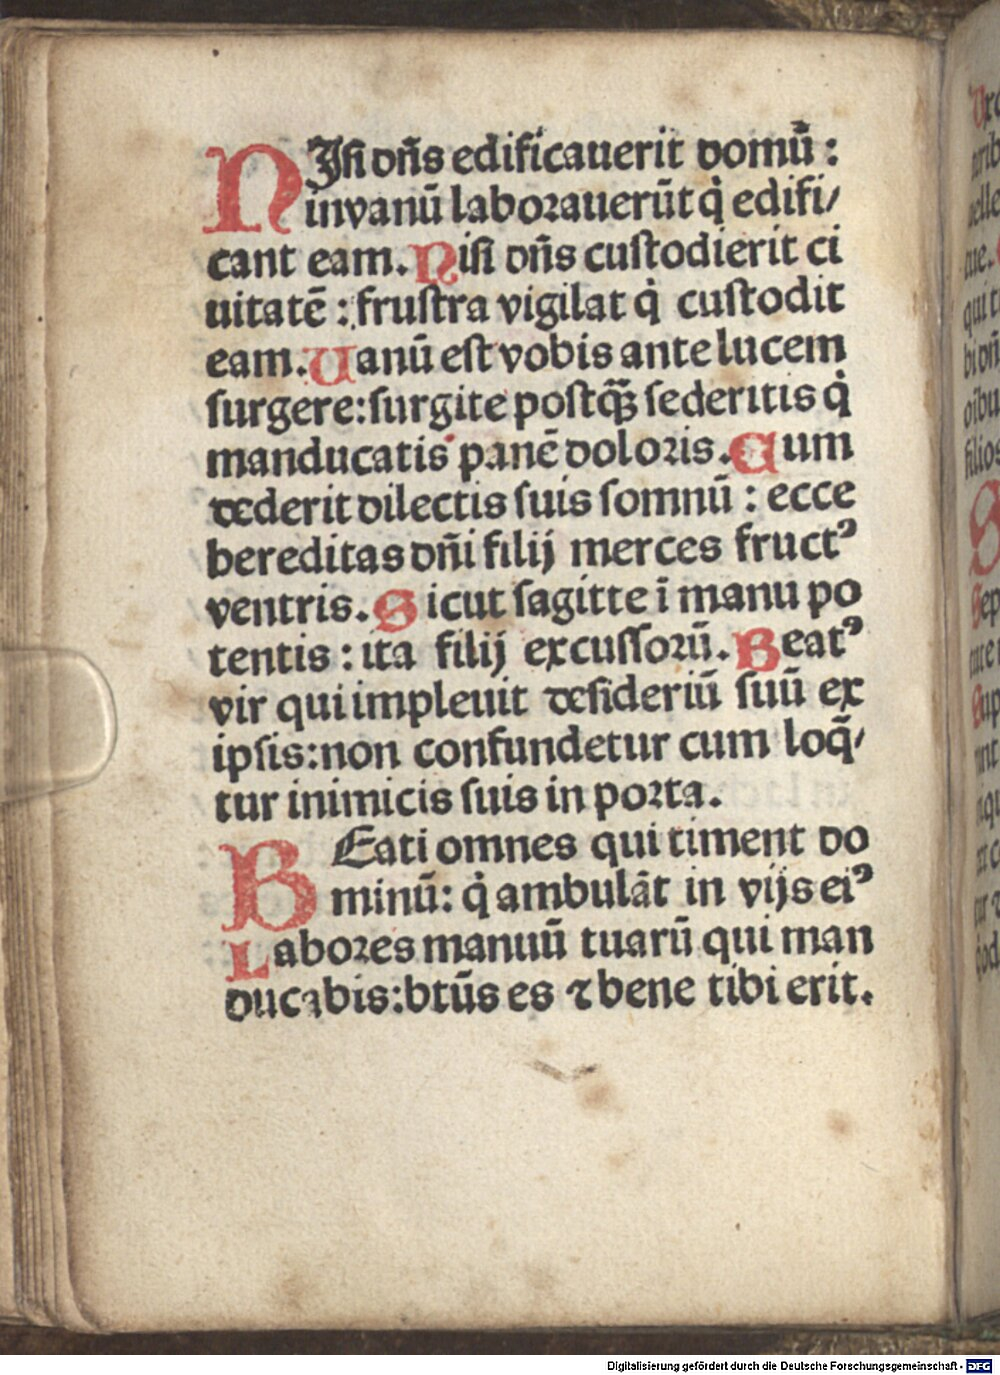 NIsi dn̄s edificauerit domū :
invanū laborauerūt q̇ edifi/
cant eam. Nisi dn̄s custodierit ci
uitatē : frustra vigilat q̇ custodit
eam. Uanū est vobis ante lucem
surgere: surgite postq̄ꝫ sederitis q̇
manducatis panē doloris. Cum
dederit dilectis suis somnū : ecce
hereditas dn̄i filij merces fructꝰ
ventris. Sicut sagitte ī manu po
tentis : ita filij excussorū. Beatꝰ
vir qui impleuit desideriū suū ex
ipsis: non confundetur cum loq̄/
tur inimicis suis in porta.
BEati omnes qui timent do
minū: q̇ ambulāt in vijs eiꝰ
Labores manuū tuarū qui man
ducabis: btūs es ⁊ bene tibi erit.
Digitalisierung gefördert durch die Deutsche Forschungsgemeinschaft - DFG